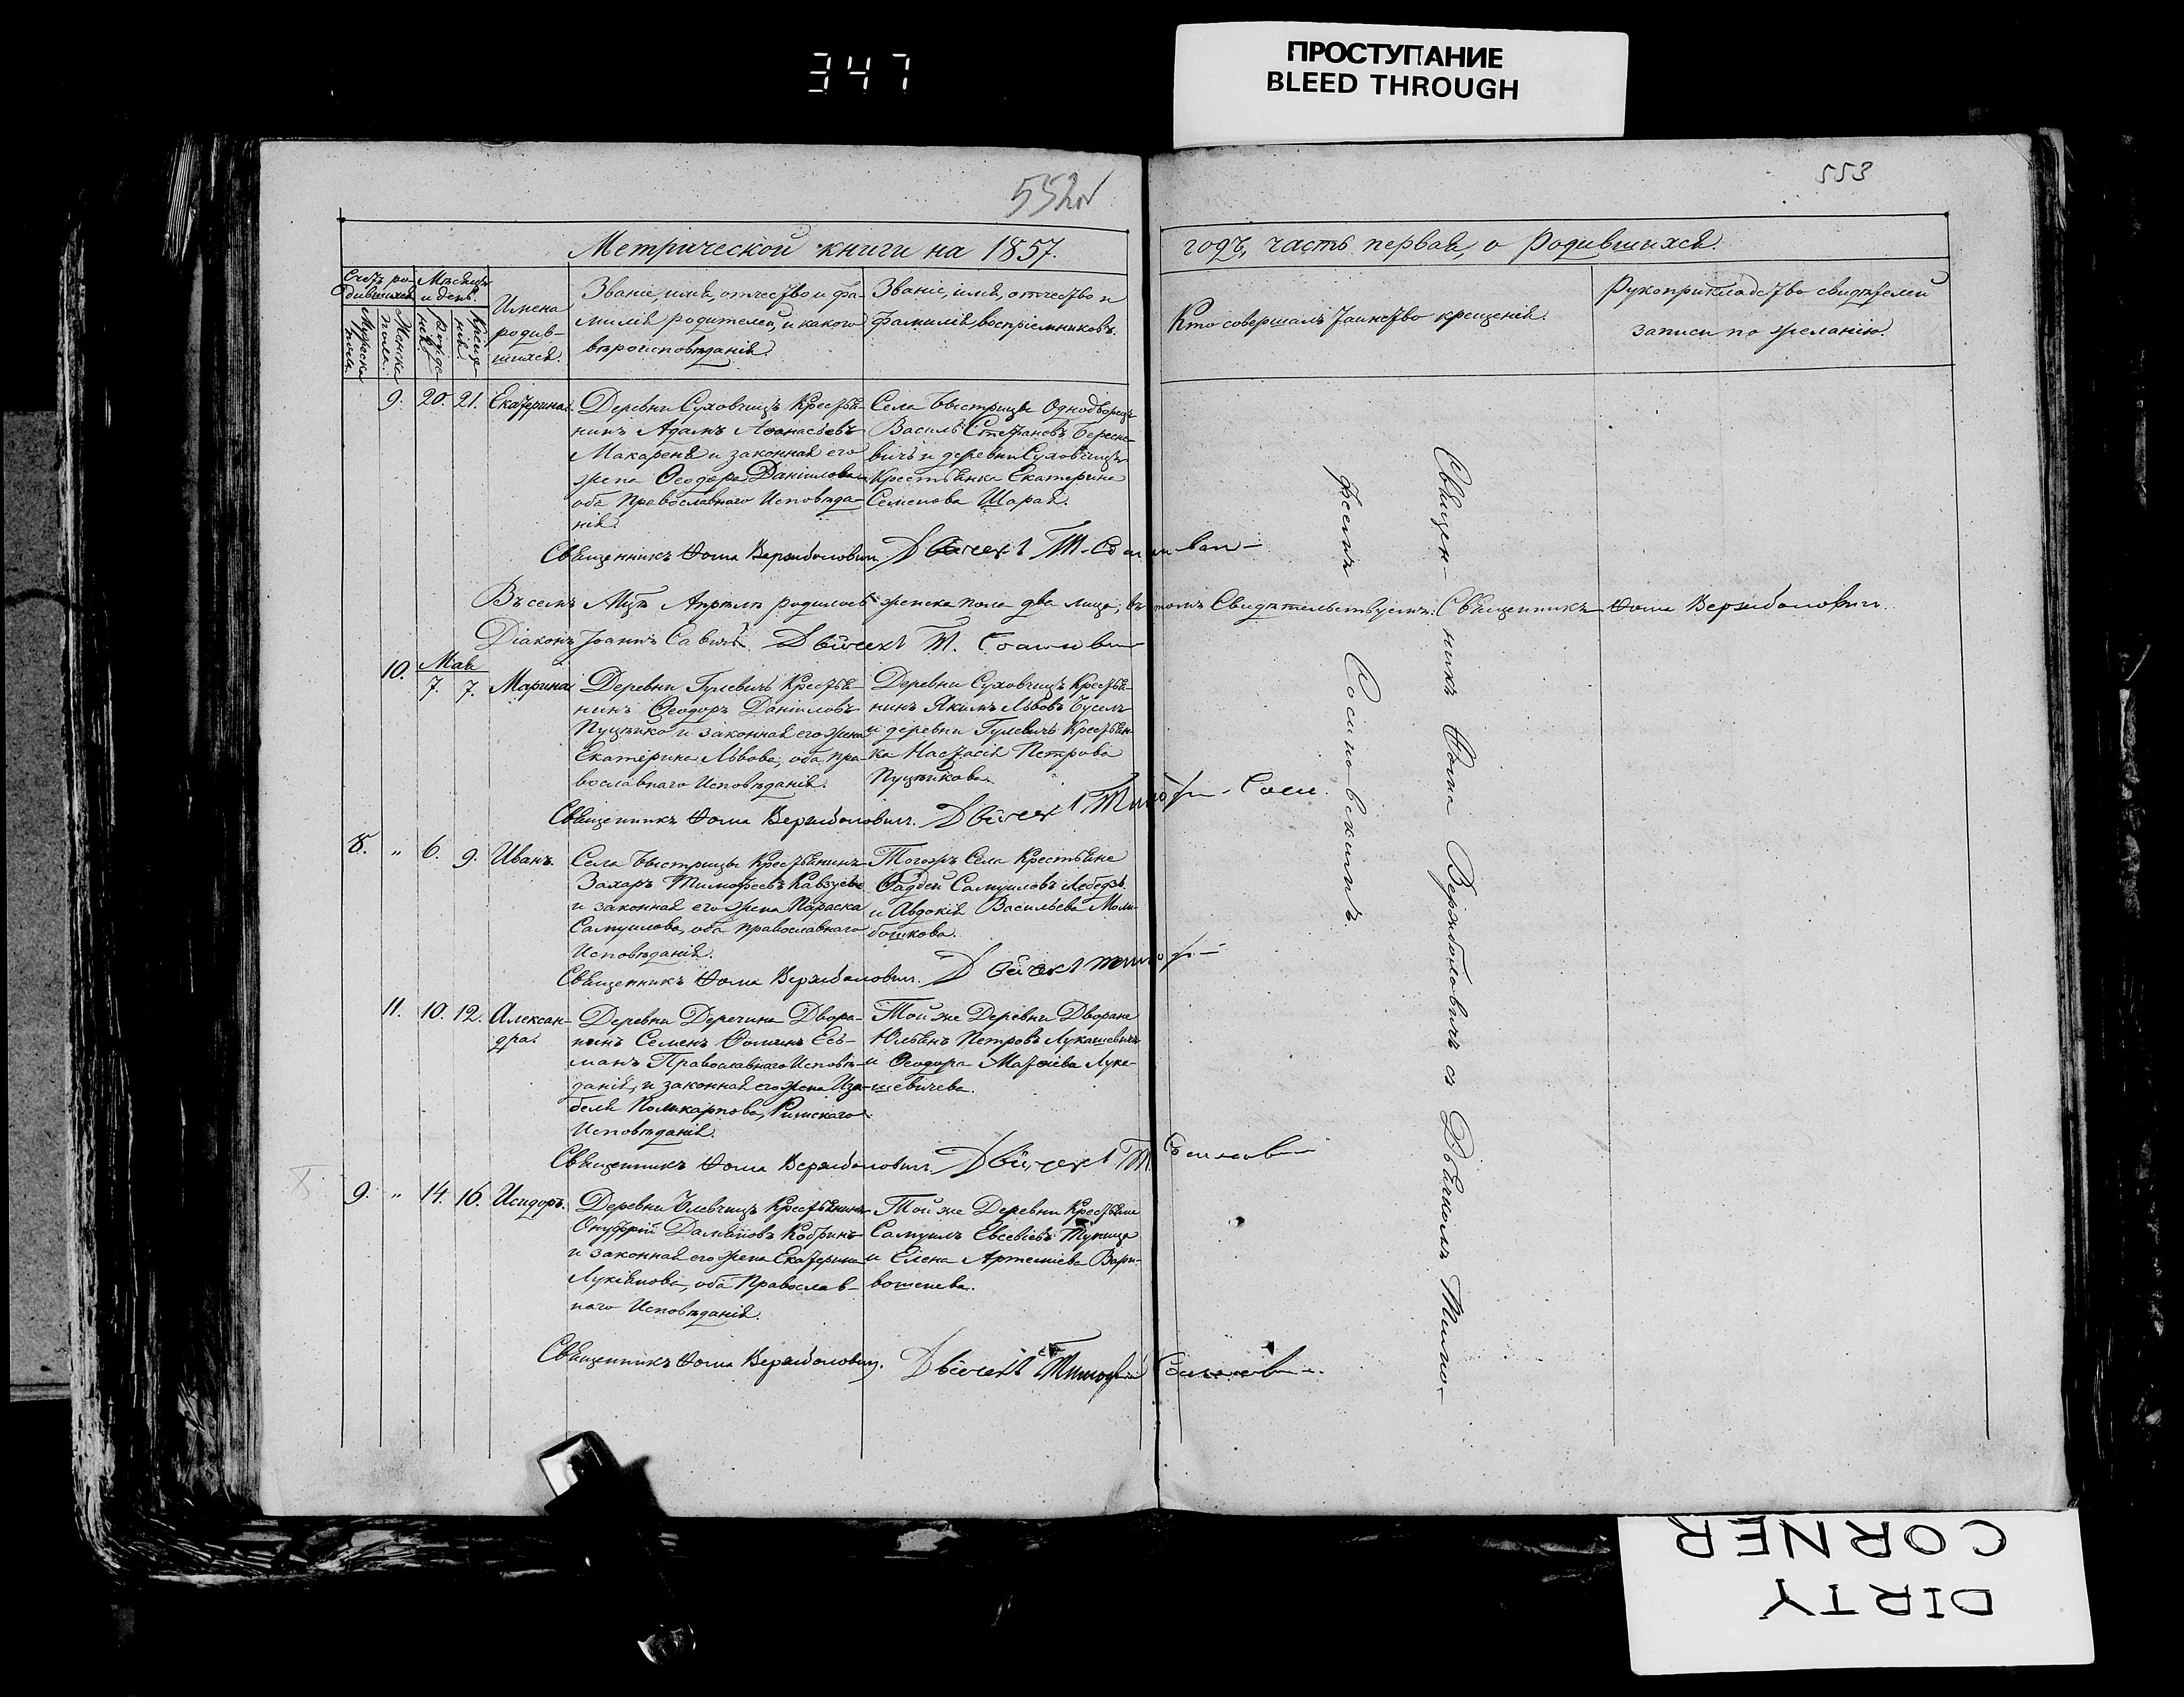 347
ПРОСТУПАНИЕ
BLEED THROUGH
552
553
Метрической книги на 1857.
годъ, часть первая, о родившихся.
Счетъ родившихся
Мѣсяцъ и день.
Мужеска пола.
Женска пола.
рожденія
крещенія
Имена
родив-
шихся.
Званіе, имя, отчество и фа-
милія родителей, и какого
вѣроисповѣданія.
Званіе, имя, отчество и
фамилія воспріемниковъ.
Кто совершалъ таинство крещенія.
Рукоприкладство свидѣтелей
записи по желанію.
9. 20. 21. Екатерина.
Деревни Суховчицъ Крестья-
нинъ Адамъ Аѳанасьевъ
Макареня и законная его
жена Ѳеодора Даніилова
оба Православнаго Исповѣда-
нія.
Села Быстрицы Однодворецъ
Василь Стефановъ Бересне-
вичъ и деревни Суховчицъ
Крестьянка Екатерина
Семенова Шарая.
Священникъ Ѳома Вержболовичъ.
Въ семъ Мцѣ Апрѣлѣ родилось женска пола два лица, въ томъ Свидѣтельствуемъ: Священникъ Ѳома Вержболовичъ.
Діаконъ Іоаннъ Савичъ.
Мая
10. 7. 7. Марина
Деревни Гулевичъ Крестья-
нинъ Ѳеодоръ Даніиловъ
и законная его жена
Екатерина Львова, оба пра-
вославнаго Исповѣданія.
Деревни Суховчицъ Крестья-
нинъ Якимъ Львовъ Бусель
и деревни Гулевичъ Крестьян-
ка Настасія Петрова
Священникъ Ѳома Вержболовичъ.
8. " 6. 9. Иванъ.
Села Быстрицы Крестьянинъ
Захаръ Тимофеевъ
и законная его жена Параска
Самуилова, оба православнаго
Исповѣданія.
Тогожъ Села Крестьяне
Ѳаддей Самуиловъ Лебедзь
и Авдокія Васильева
Священникъ Ѳома Вержболовичъ.
11. 10. 12. Алексан-
дра.
Деревни Деречина Дворя-
нинъ Семенъ Ѳоминъ Есь-
манъ Православнаго Исповѣ-
данія, и законная его жена Иза-
беля Поликарпова, Римскаго
Исповѣданія.
Той же Деревни Дворяне
Юльянъ Петровъ Лукашевичъ
и Ѳеодора Матѳіева Лука-
шевичева.
Священникъ Ѳома Вержболовичъ.
9. " 14. 16. Исидоръ.
Крестьянинъ
Онуфрій Даміановъ Кобринъ
и законная его жена Екатерина
Лукіянова, оба Православ-
наго Исповѣданія.
Той же Деревни Крестьяне
Самуилъ Евсевіевъ Тупица
и Елена Артеміева Вари-
вошева.
Священникъ Ѳома Вержболовичъ.
Священникъ Ѳома Вержболовичъ съ Дьячкомъ Тимо-
феемъ Осиповскимъ.
DIRTY
CORNER